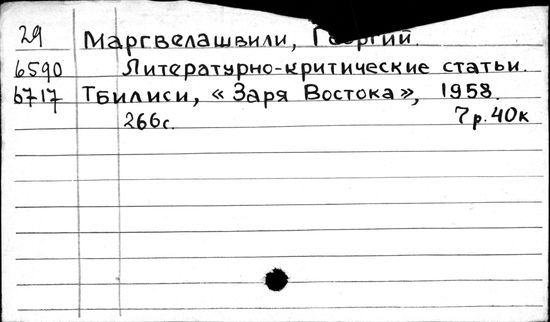 29 Маргвелашвили, Георгий.
6590 Литературно-критические статьи.
6717 Тбилиси, «Заря Востока», 1958.
266с. 7р.40к